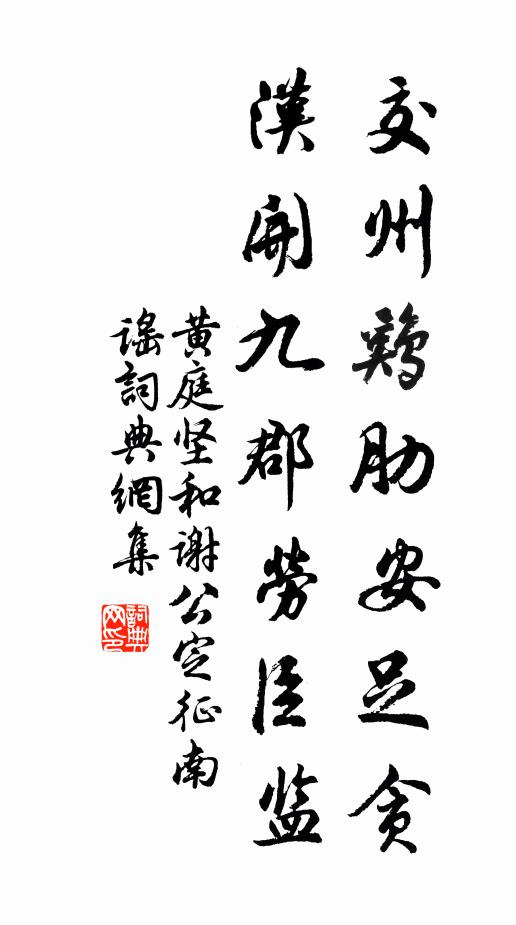 交州鷄肋安足貪
漢開九郡勞臣監
黄庭坚和谢公定征南
謠詞典網集
詞典
网印